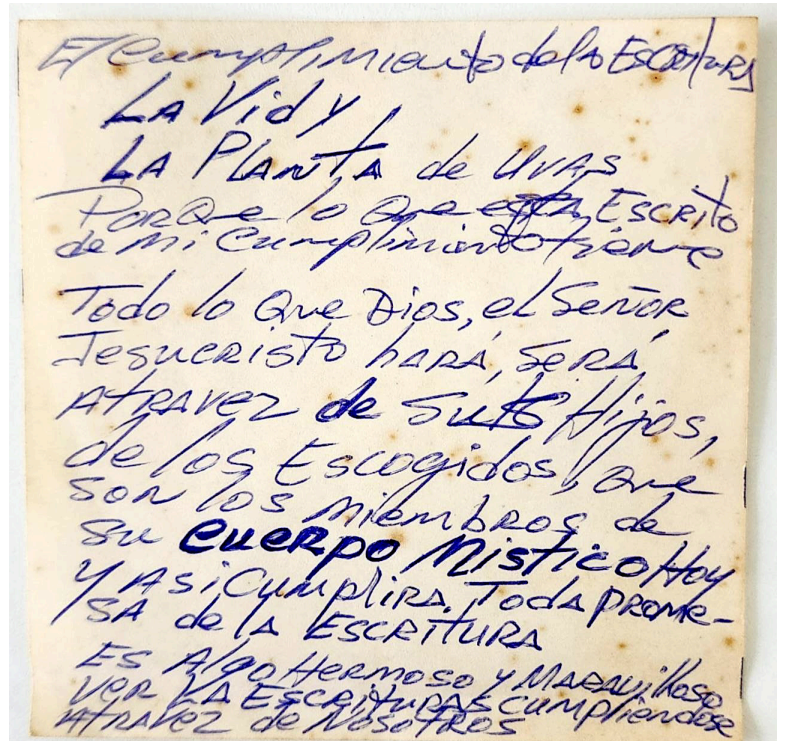 El Cumplimiento de la Escritura
La Vid y
La Planta de Uvas
Porque lo Que está Escrito
de mi Cumplimiento tiene
Todo lo Que Dios, el Señor
Jesucristo hará, Será
Atravez de Sus Hijos,
de los Escogidos, que
son los miembros de
su Cuerpo Mistico Hoy
Y Asi Cumplira Toda Prome-
sa de la Escritura
Es Algo Hermoso y Maravilloso
ver La Escrituras Cumpliendose
Atravez de Nosotros